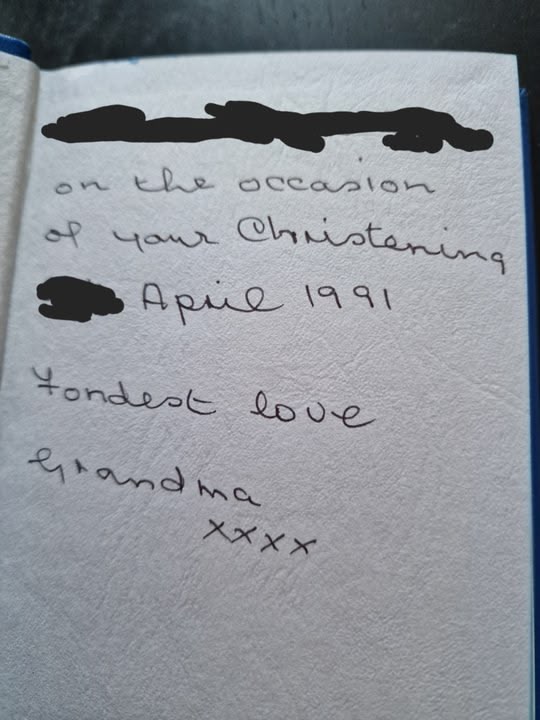 on the occasion
of your Christening
April 1991
Fondest love
Grandma
xxxx